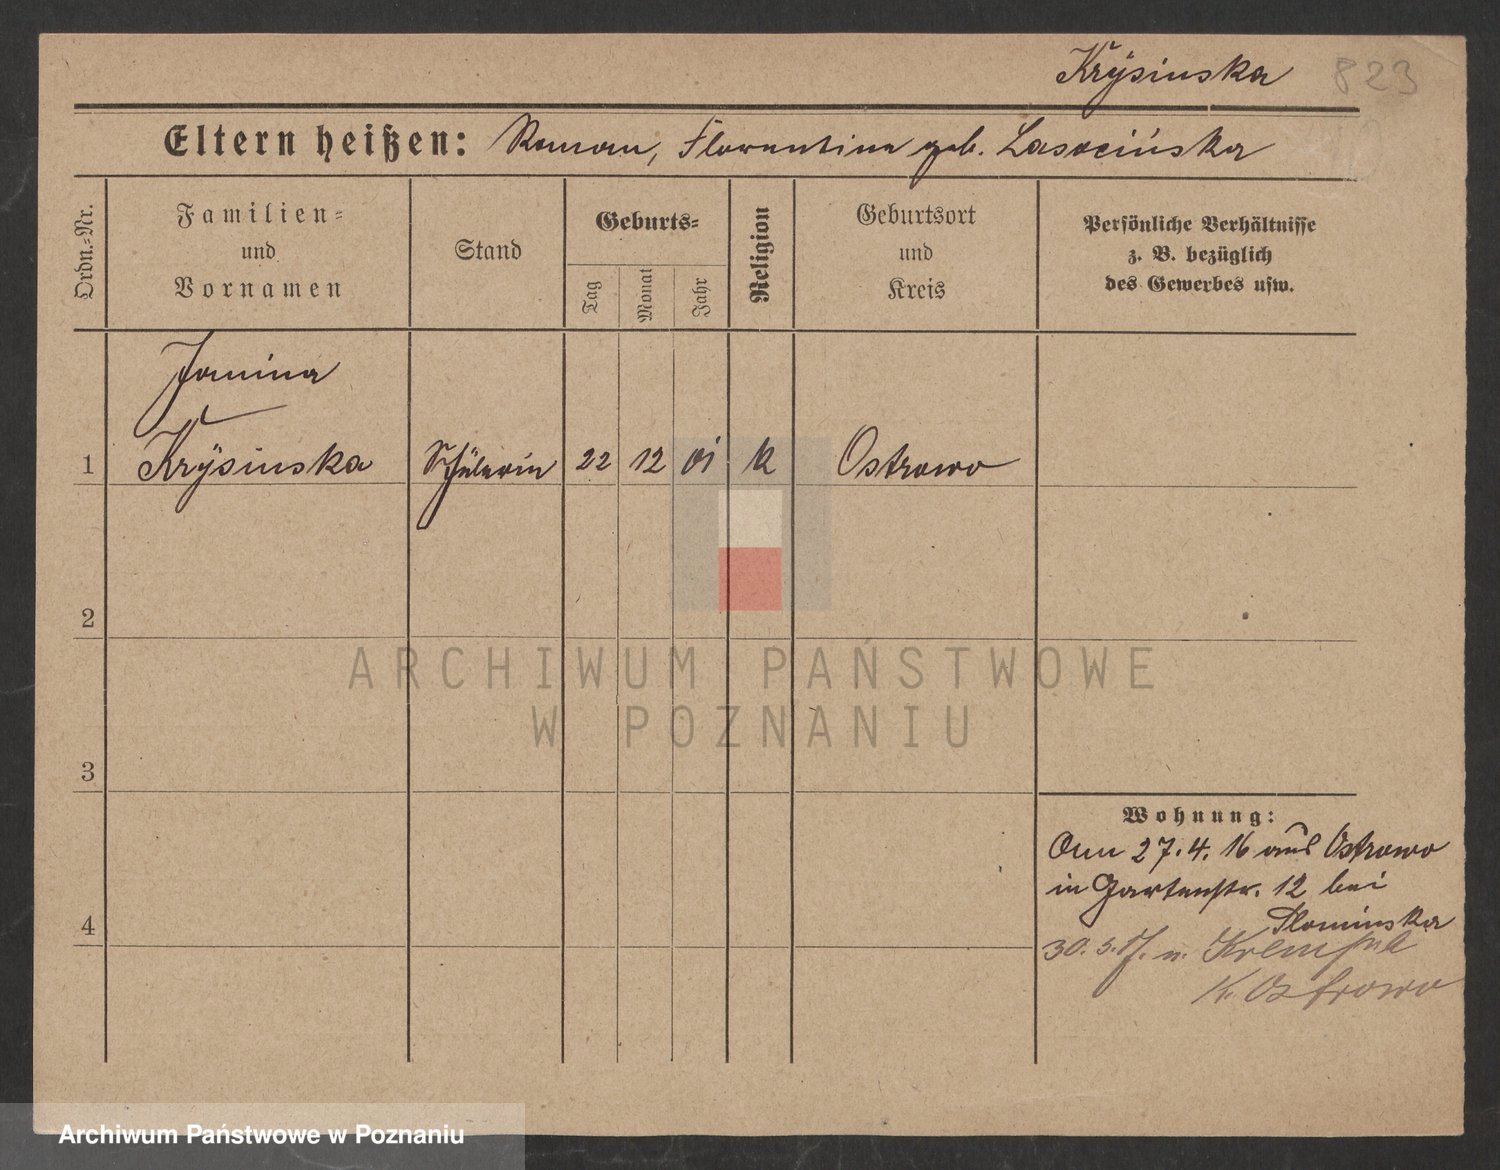 Krÿsinska 823
Eltern heißen: Roman, Florentina geb. Lasocińska
Ordn.=Nr.
Familien=
und
Vornamen
Stand
Geburts=
Tag
Monat
Jahr
Religion
Geburtsort
und
Kreis
Persönliche Verhältnisse
z. B. bezüglich
des Gewerbes usw.
Janina
1 Krÿsinska Schülerin 22 12 01 k Ostrowo
2
3
4
Wohnung:
27.4.16 aus Ostrowo
in Gartenstr. 12 bei
Plominska
30. 5. 17. n. Krempa
K. Ostrowo
ARCHIWUM PAŃSTWOWE
W POZNANIU
Archiwum Państwowe w Poznaniu